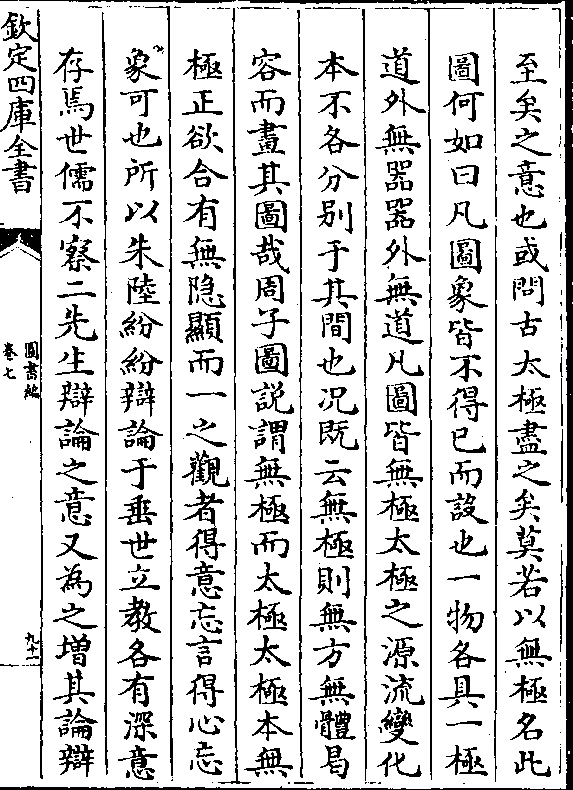 至矣之意也或問古太極盡之矣莫若以無極名此
圖何如曰凡圖象皆不得已而設也一物各具一極
道外無器器外無道凡圖皆無極太極之源流變化
本不各分別于其間也况既云無極則無方無體曷
容而畫其圖哉周子圖說謂無極而太極太極本無
極正欲合有無隐顯而一之觀者得意忘言得心忘
象可也所以朱陸紛紛辯論于垂世立教各有深意
存焉世儒不察二先生辯論之意又為之增其論辯
欽定四庫全書
圖書編
卷七
九十一